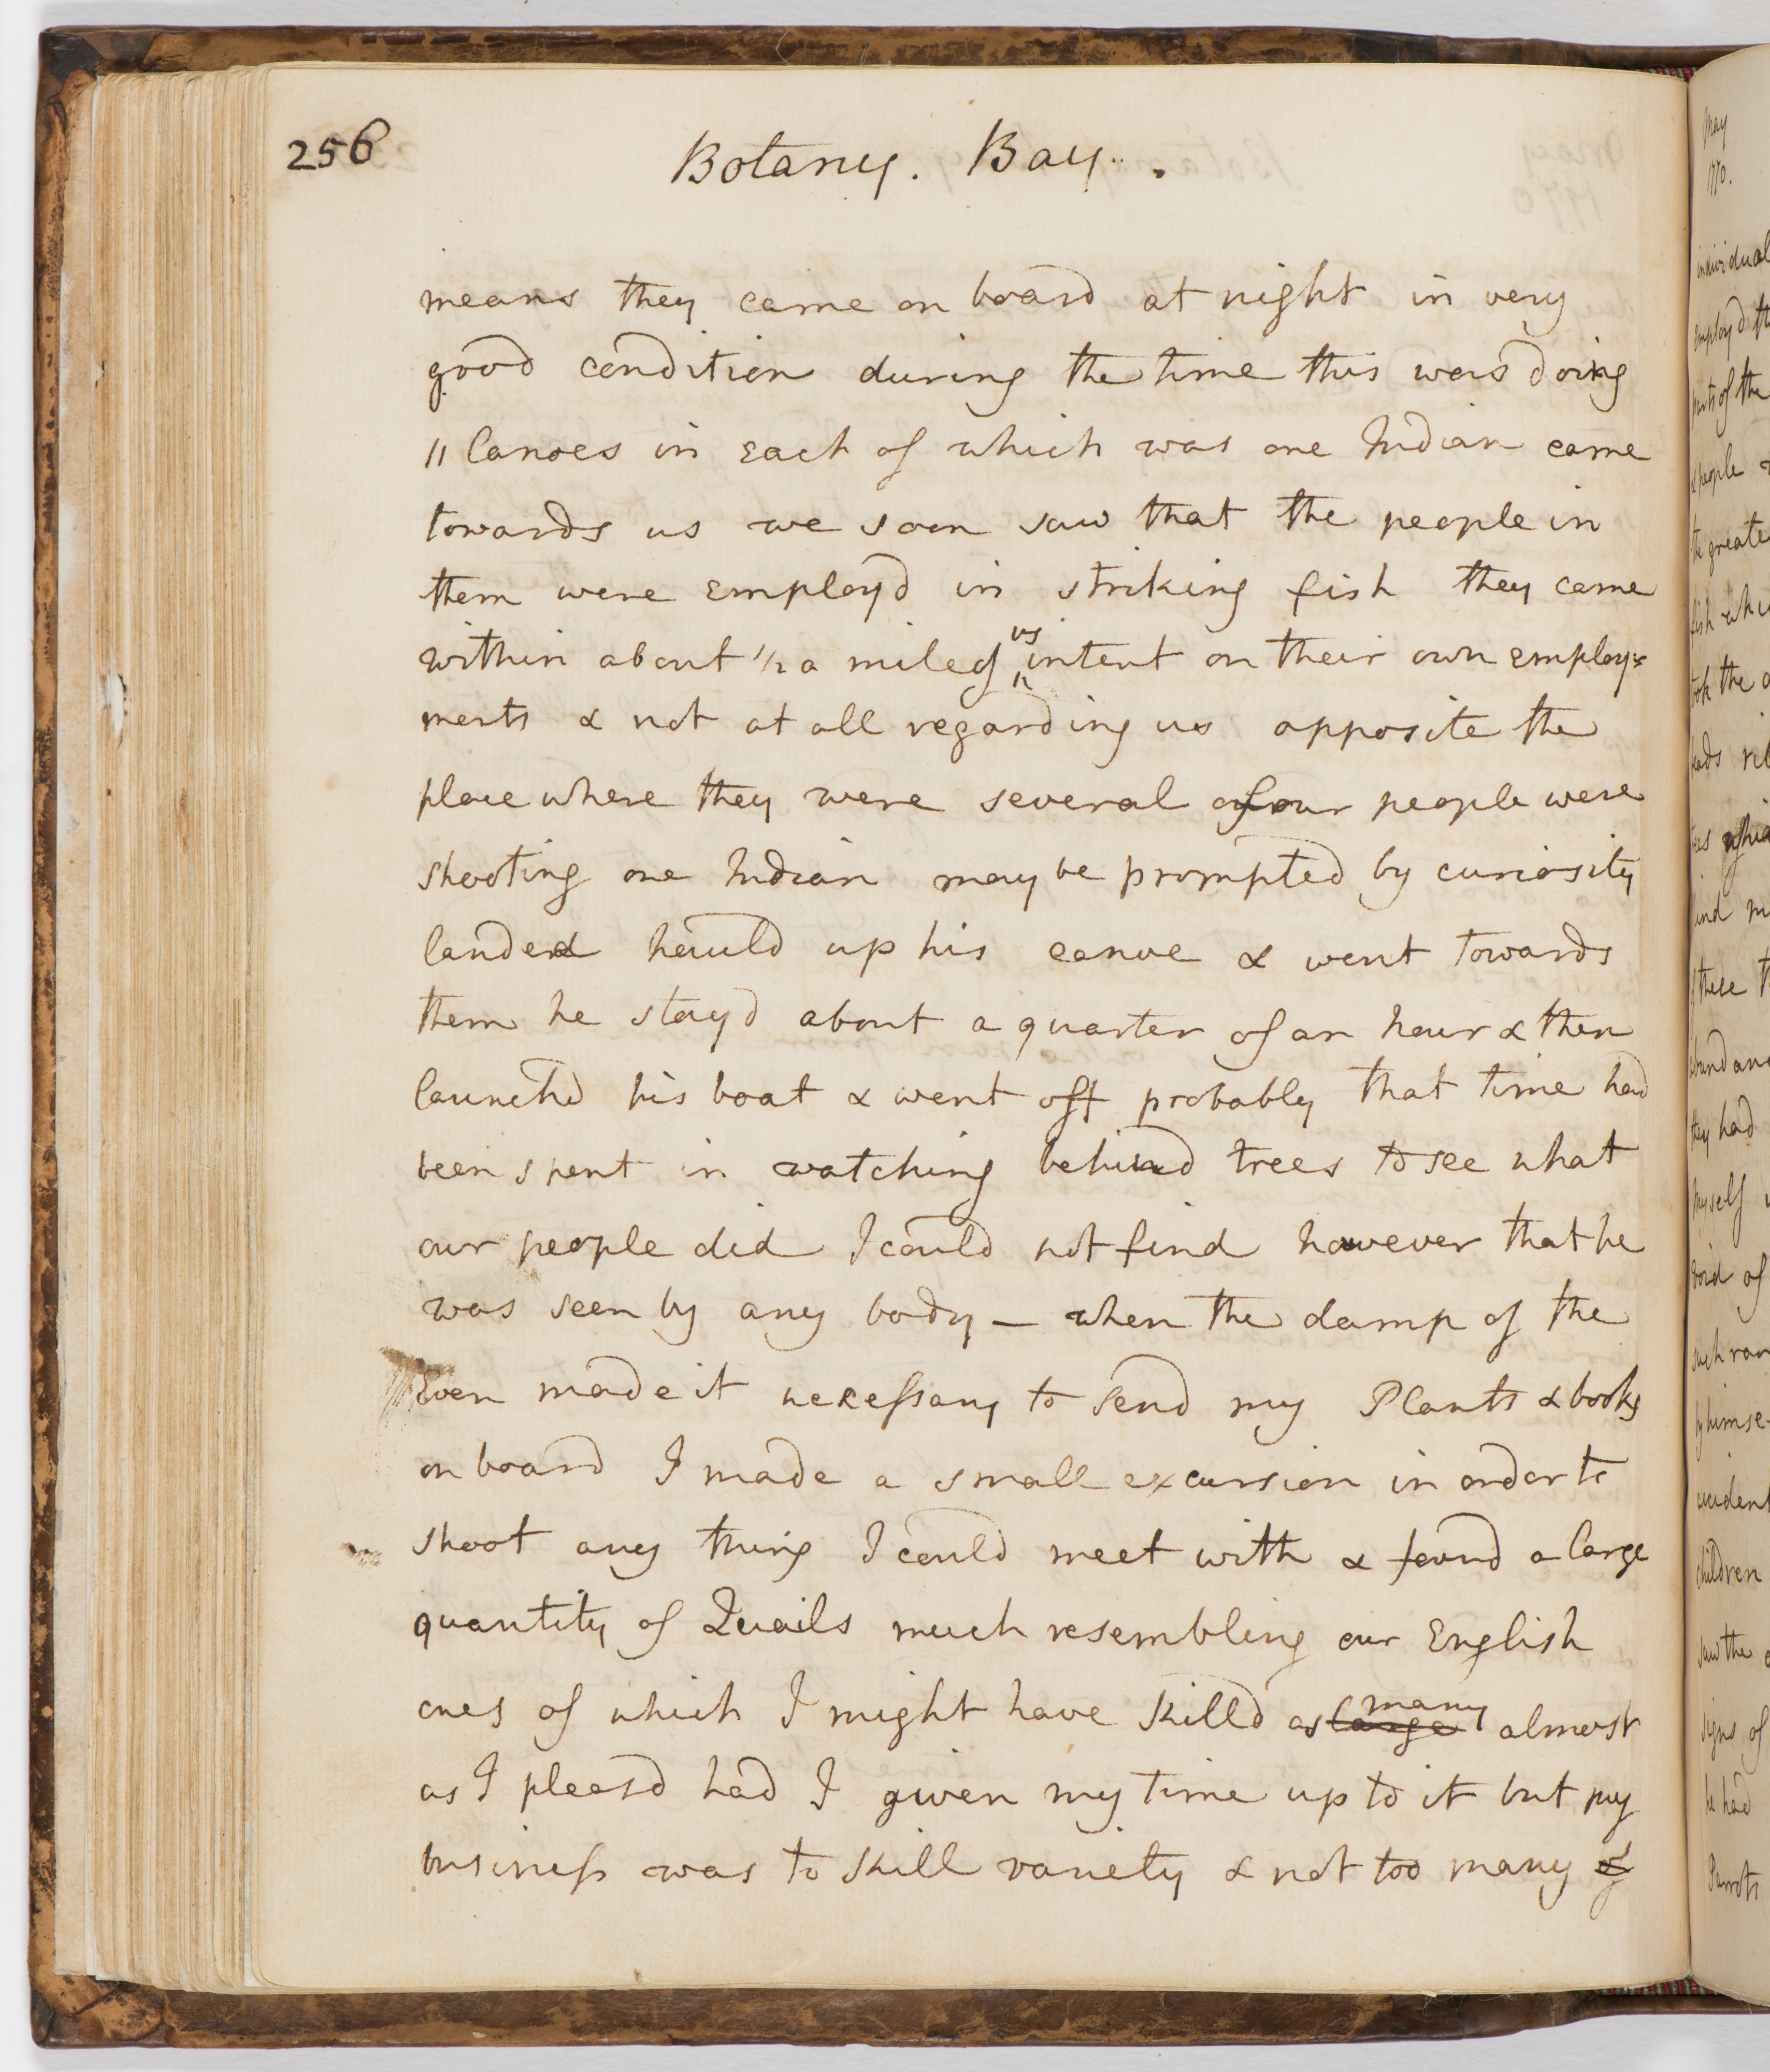 256
Botany. Bay.
means they came on board at night in very
good condition during the time this was doing
11 Canoes in Each of which was one Indian came
towards us we soon saw that the people in
them were Employd in striking fish they came
within about 1/2 a mile of us intent on their own employ=
ments & not at all regarding us opposite the
place where they were several of our people were
shooting one Indian may be prompted by curiosity
landed hauld up his canoe & went towards
them he stayd about a quarter of an hour & then
launchd his boat & went off probably that time had
been spent in watching behind trees to see what
our people did I could not find however that he
was seen by any body — when the damp of the
Even made it necessary to send my Plants & books
on board I made a small excursion in order to
shoot any thing I could meet with & found a large
quantity of Quails much resembling our English
ones of which I might have killd as large many almost
as I pleasd had I given my time up to it but my
business was to kill variety & not too many of
May
1770.
individual
employd
parts of the
& people
the greate
fish
took the
heads
find
these
abundan
they had
myself
void of
such
by himse
accident
children
saw the
signs of
he had
Parrots